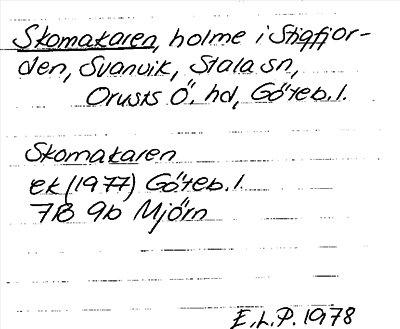 Skomakaren, holme i Stigfjor-
den, Svanvik, Stala sn,
Orusts Ö. hd, Göteb. l.
Skomakaren
ek (1977) Göteb. l.
7B 9b Mjörn
E.L.P. 1978